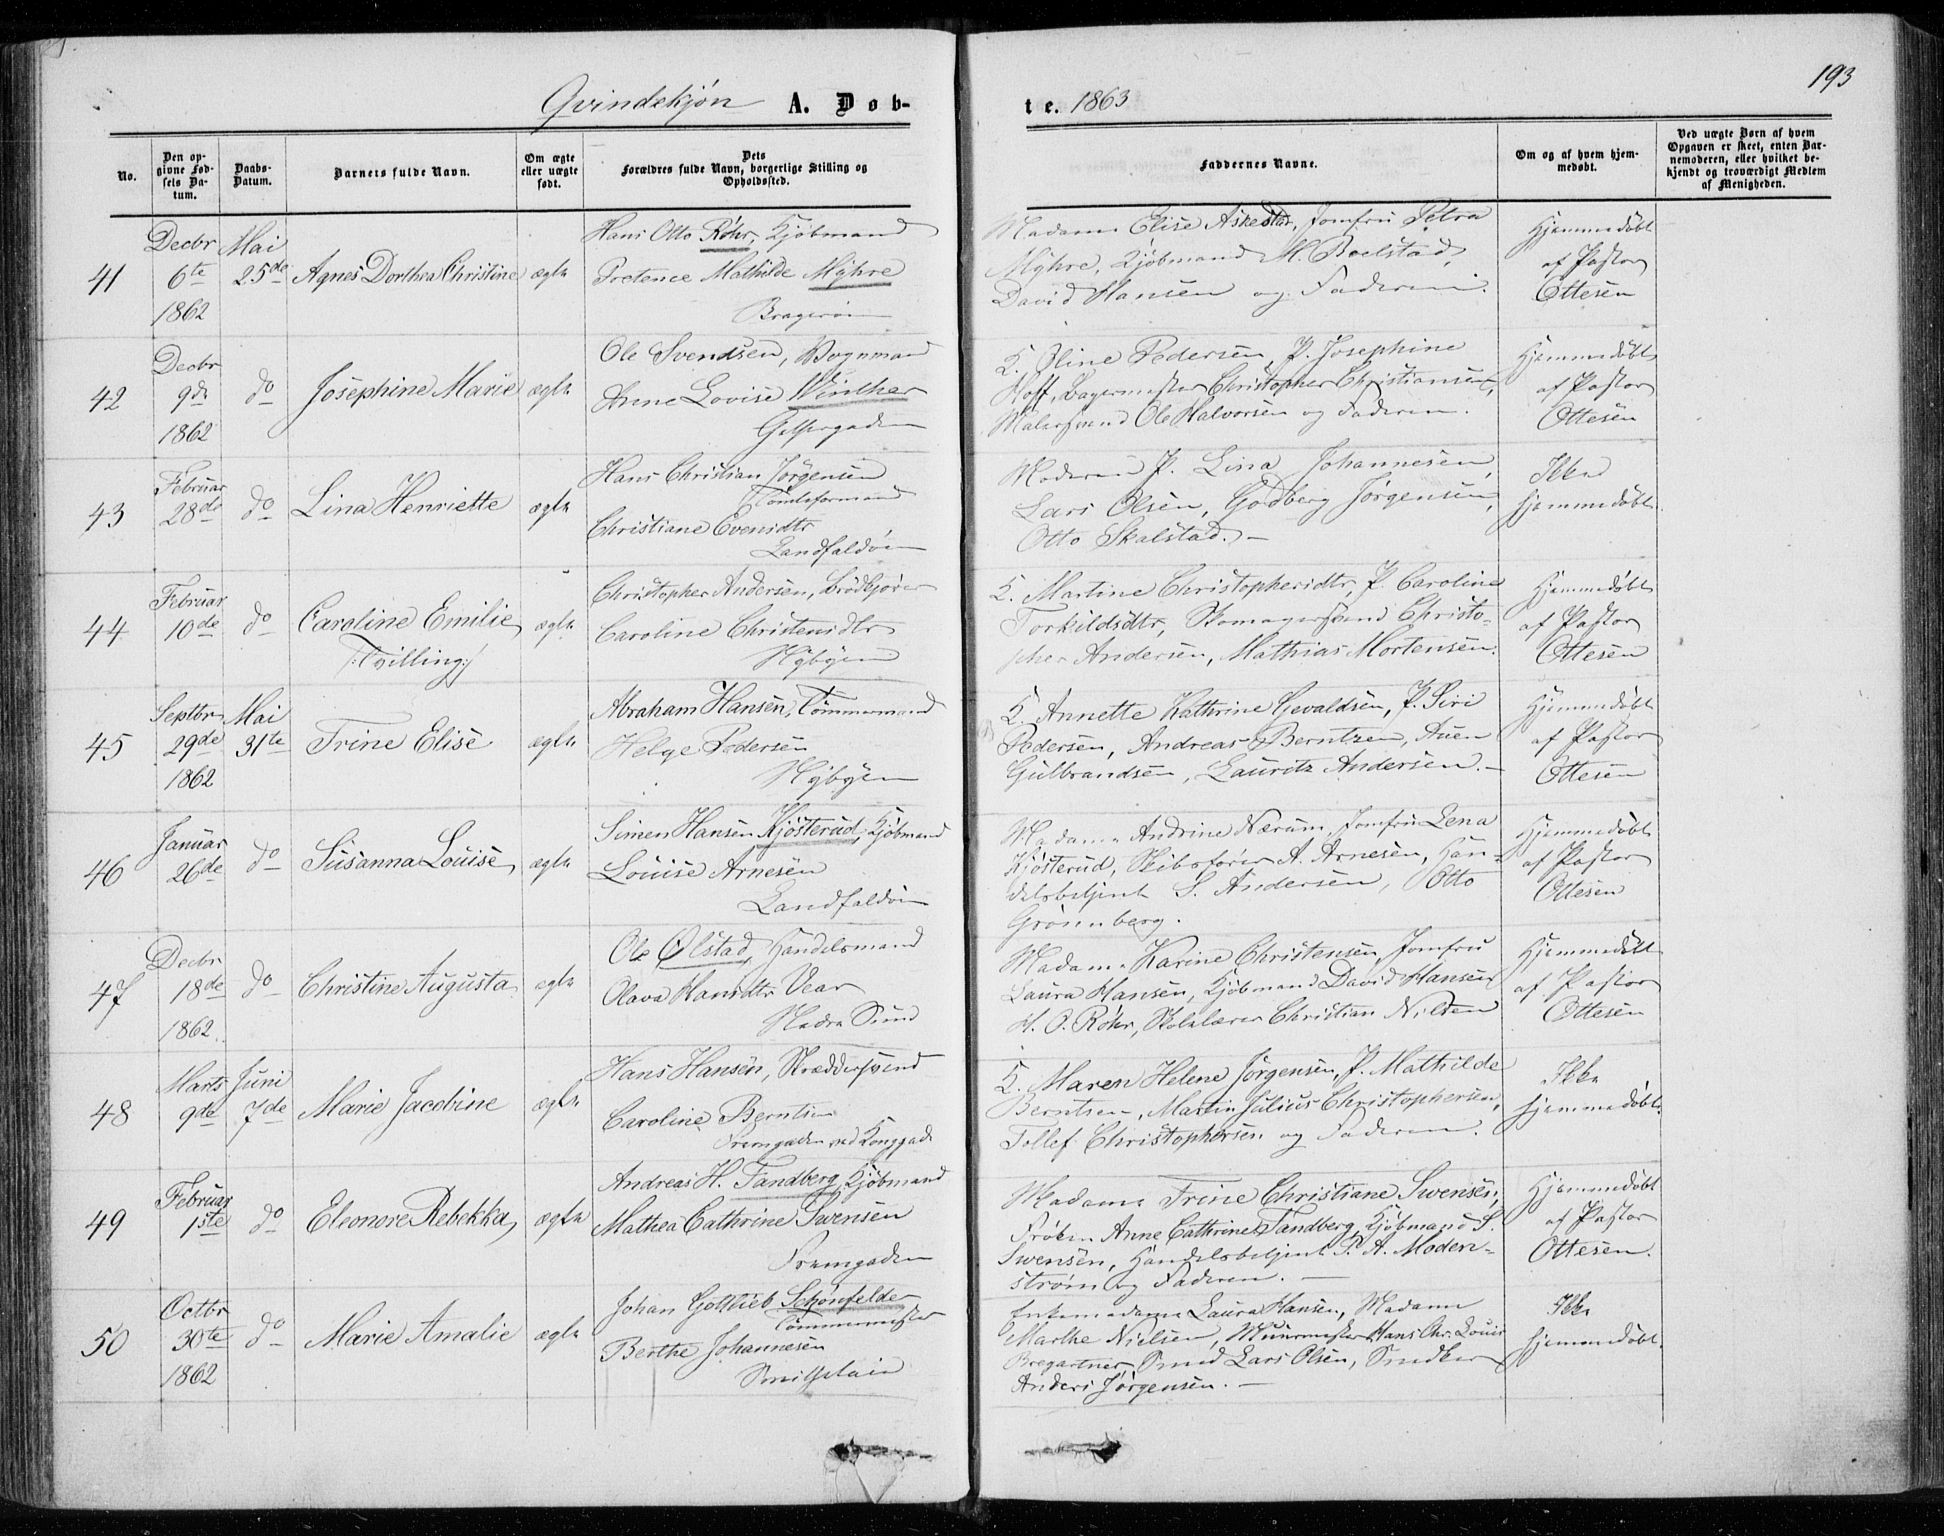 193
Qvindekjøn A. Døb-
te. 1863
No.
Den op-
givne Fød-
sels Da-
tum.
Daabs-
Datum.
Barnets fulde Navn.
Om ægte
eller uægte
født.
Dets
Forældres fulde Navn, borgerlige Stilling og
Opholdssted.
Faddernes Navne.
Om og af hvem hjem-
medøbt.
Ved uægte Børn af hvem
Opgaven er skeet, enten Bar-
nemoderen, eller hvilket be-
kjendt og troværdigt Medlem
af Menigheden.
41
Decbr
6te
1862
Mai
25de
Agnes Dorthea Christine
ægte
Hans Otto Røhr, Kjøbmand
Mathilde Myhre
Bragerøen
Madame Elise Jomfru Petra
Myhre, Kjøbmand M. Boelstad,
David Hansen og Faderen.
Hjemmedøbt
af Pastor
Ottesen
42
Decbr
9de
1862
do
Josephine Marie
ægte
Ole Svendsen, Vognmand
Anne Lovise Winther
K. Oline Pedersen, P. Josephine
Hoff, Bagermester Christopher Christiansen,
Malersvend Ole Halvorsen og Faderen.
Hjemmedøbt
af Pastor
Ottesen
43
Februar
28de
do
Lina Henriette
ægte
Hans Christian Jørgensen
Tomteformand
Christiane Evensdtr
Landfaldøen
Moderen, P. Lina Johannesen,
Lars Olsen, Godberg Jørgensen,
Otto Skalstad. —
Ikke
hjemmedøbt.
44
Februar
10de
do
Caroline Emilie
/: Tvilling :/
ægte
Christopher Andersen, Brødkjører
Caroline Christensdtr
Nybyen
K. Martine Christophersdtr, P. Caroline
Torkildsdtr, Skomagersvend Christo-
pher Andersen, Mathias Mortensen.
Hjemmedøbt
af Pastor
Ottesen
45
Septbr
29de
1862
Mai
31te
Trine Elise
ægte
Abraham Hansen, Tømmermand
Helge Pedersen
Nybyen
K. Annette Kathrine Gevaldsen, P. Siri
Pedersen, Andreas Berntzen, Auen
Gulbrandsen, Lauritz Andersen. —
Hjemmedøbt
af Pastor
Ottesen
46
Januar
26de
do
Susanna Louise
ægte
Simen Hansen Kjøsterud, Kjøbmand
Louise Arnesen
Landfaldøen
Madame Andrine Nærum, Jomfru Lena
Kjøsterud, Skibsfører A. Arnesen, Han-
delsbetjent S. Andersen, Otto
Grønnberg.
Hjemmedøbt
af Pastor
Ottesen
47
Decbr
18de
1862.
do
Christine Augusta
ægte
Ole Ølstad, Handelsmand
Olava Hansdtr Vear
Nedre Sund
Madame Karine Christensen, Jomfru
Laura Hansen, Kjøbmand David Hansen,
H. O. Røhr, Skolelærer Christian Nilsen
Hjemmedøbt
af Pastor
Ottesen
48
Marts
9de
Juni
7de
Marie Jacobine
ægte
Hans Hansen, Skræddersvend
Caroline Berntsen
K. Maren Helene Jørgensen, P. Mathilde
Berntsen, Martin Julius Christophersen,
Tollef Christophersen og Faderen.
Ikke
hjemmedøbt.
49
Februar
1ste
do
Eleonore Rebekka
ægte
Andreas H. Tandberg, Kjøbmand
Mathea Cathrine Swensen
Madame Trine Christiane Swensen,
Frøken Anne Cathrine Tandberg, Kjøbmand S.
Swensen, Handelsbetjent P. A. Moden-
strøm og Faderen. —
Hjemmedøbt
af Pastor
Ottesen.
50
Octbr
30te
1862
do
Marie Amalie
ægte
Johan Gottlieb Schønfelder
Tømmermester
Berthe Johannesen
Enkemadame Laura Hansen, Madame
Marthe Nielsen, Muurmester Hans Chr. Louis
Bregartner, Smed Lars Olsen, Snedker
Anders Jørgensen. —
Ikke
hjemmedøbt.